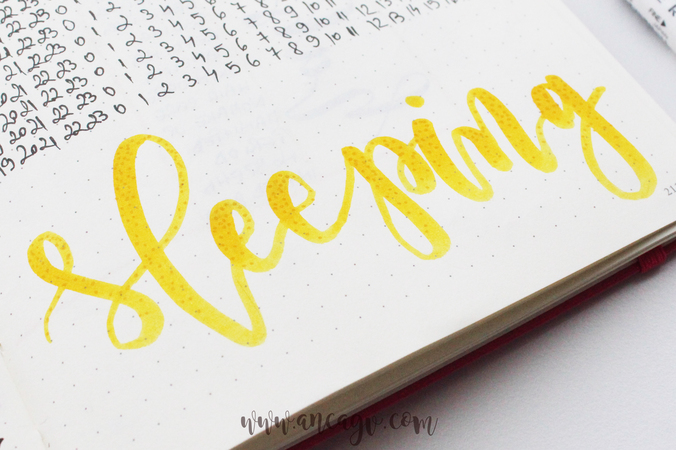 21 22 23 0 1 2 3 4
21 22 23 0 1 2 3 4 5 6 7 8
20 21 22 23 0 1 2 3 4 5 6 7 8 9 10 11
20 21 22 23 0 1 2 3 4 5 6 7 8 9 10 11 12 13 14
19 20 21 22 23 0 1 2 3 4 5 6 7 8 9 10 11 12 13 14 15 16
sleeping
www.ancagv.com